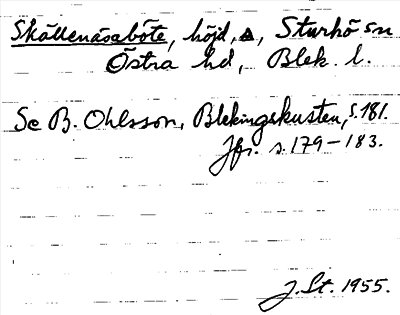 Skällenäsabôte, höjd, ▲, Sturkö sn
Östra hd, Blek. l.
Se B. Ohlsson, Blekingskusten, s. 181.
Jfr. s. 179-183.
J. St. 1955.